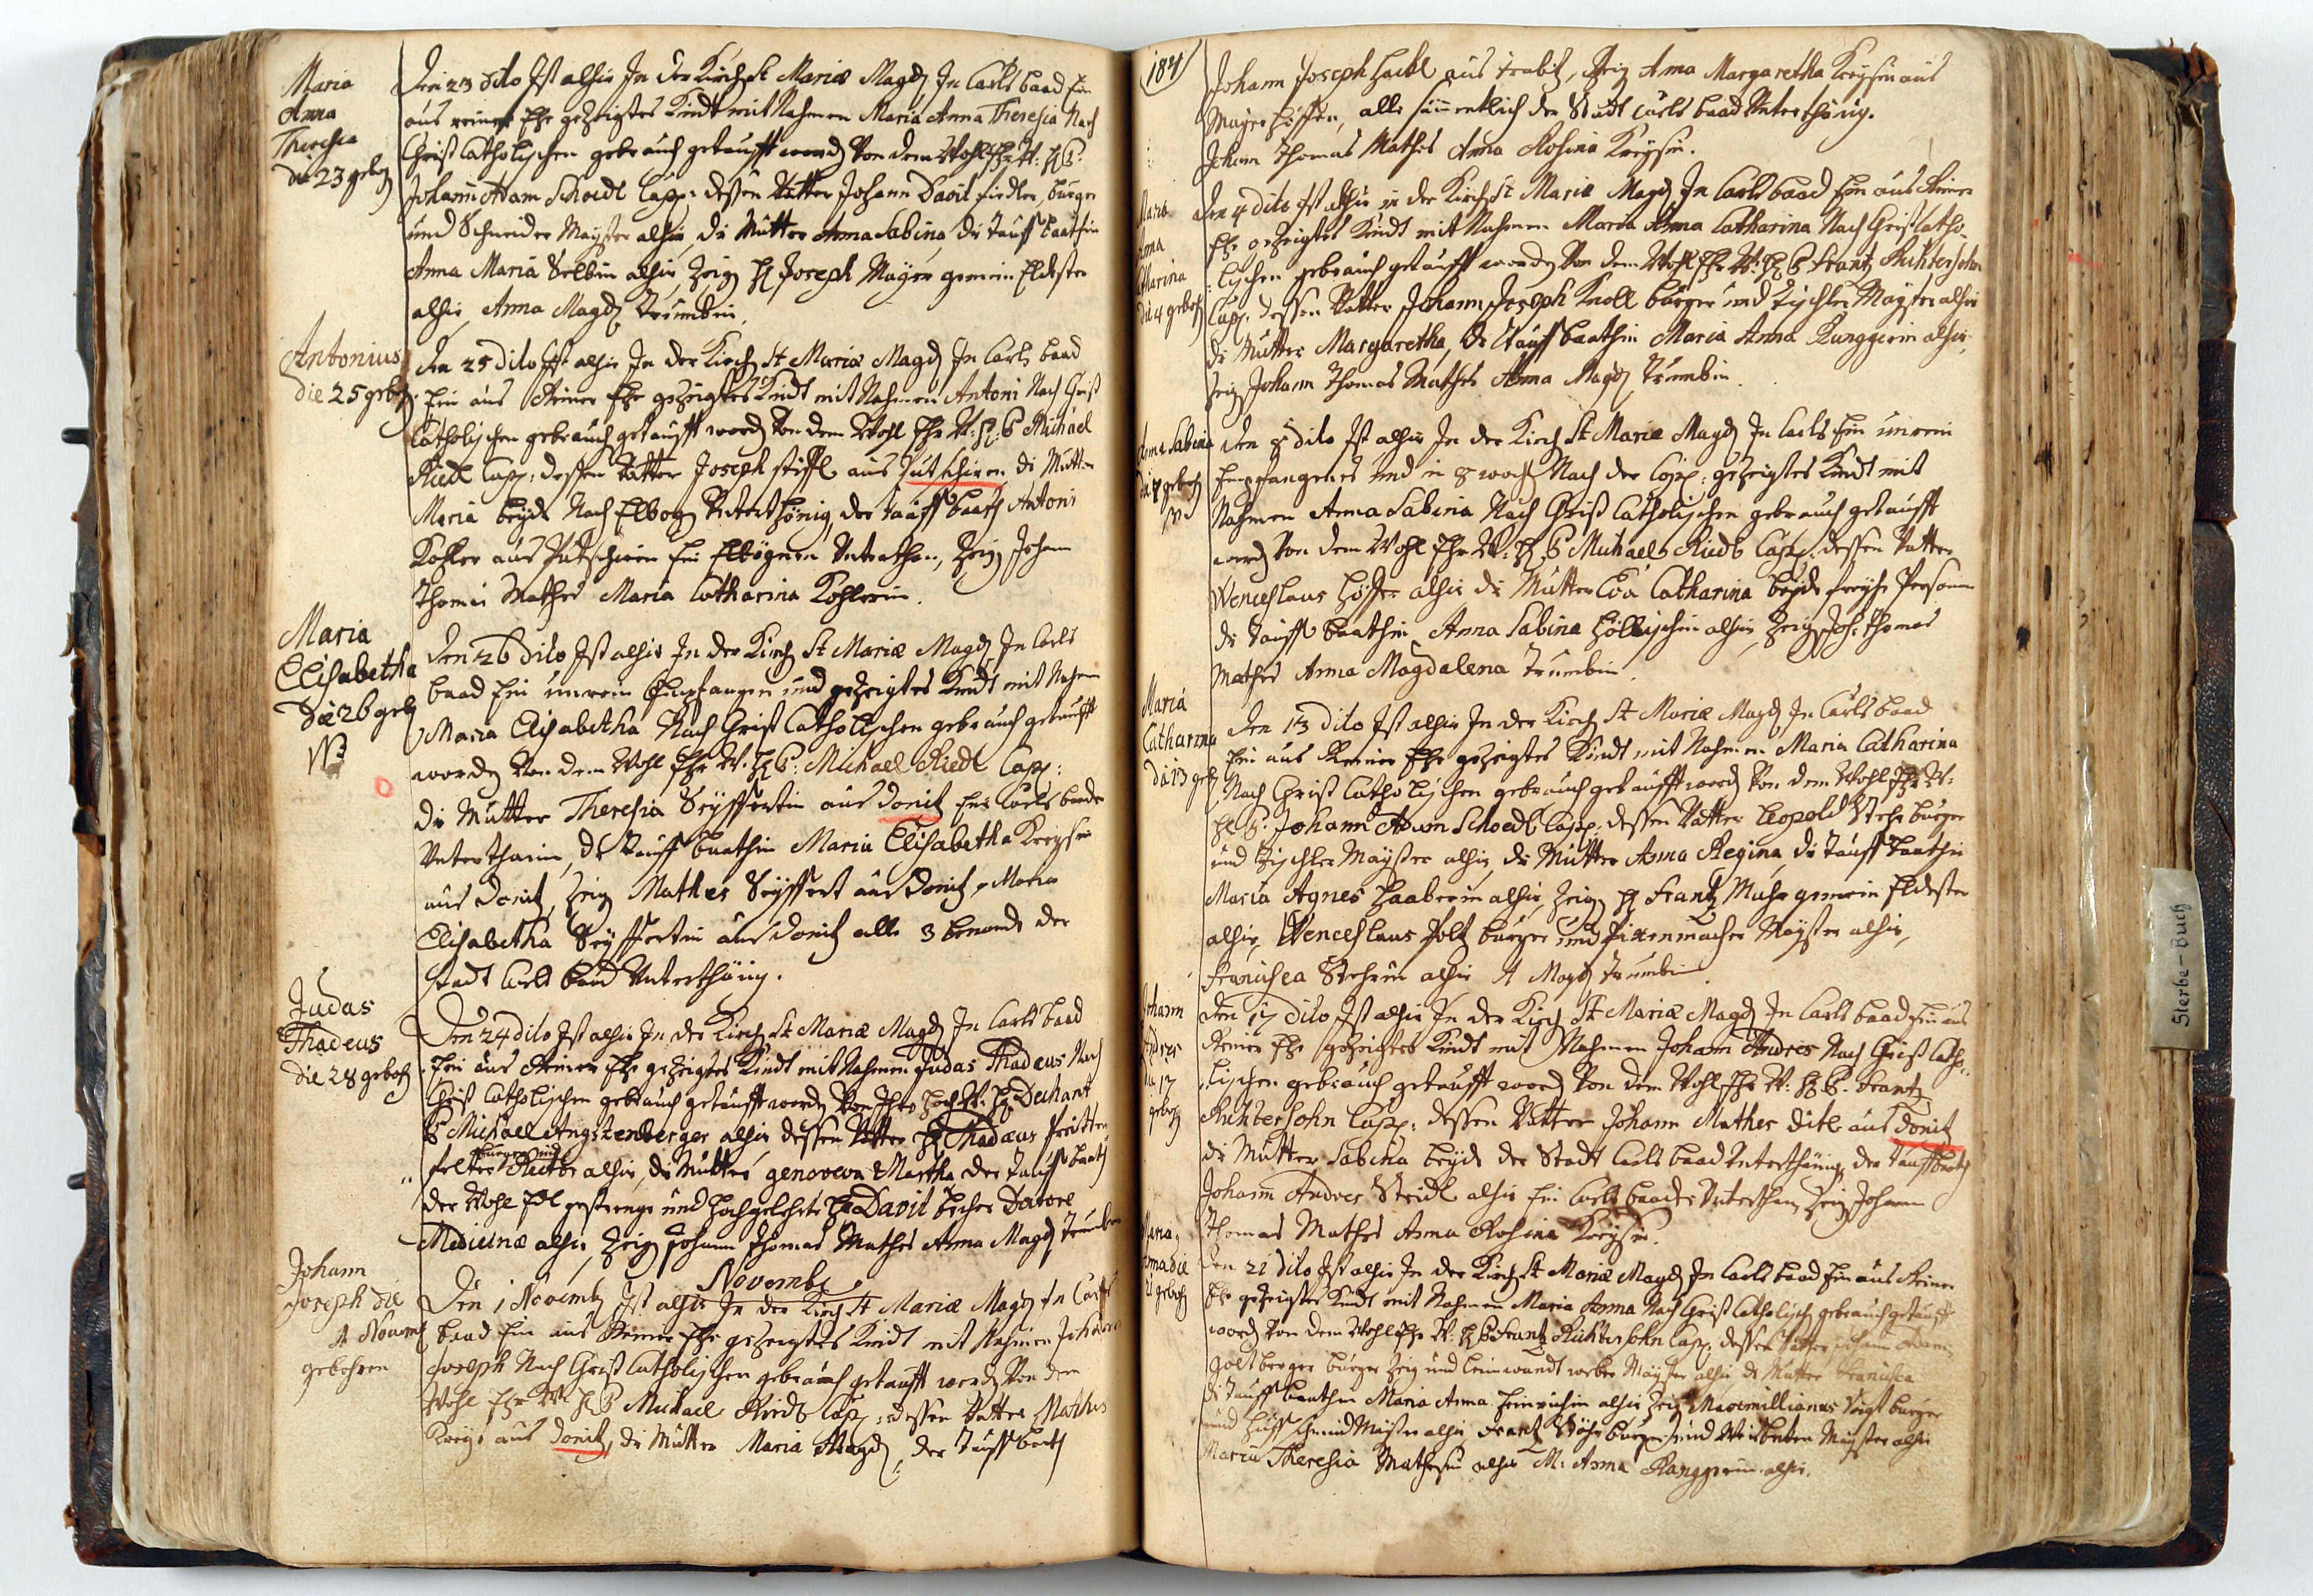 Maria
Anna
Theresia
die 23 geboh
Den 23 dito Ist alhir In der Kirch St Mariæ Magd In Carlsbaad Ein
aus reiner Ehe gezeigtes Kindt mit Nahmen Maria Anna Theresia Nach
Christ Catholischen gebrauch getaufft word Von dem Wohl Ehr W: H: P:
Johann Adam Schoedl Capp: dessen Vatter Johann Davit fiedler, burger
und Schneider Mayster alhir, die Mutter Anna Sabina, die tauff baathin
Anna Maria Selbin alhir, Zeig H Joseph Mayer gemein Eldester
alhir, Anna Magd Trumbin.
Antonius
die 25 geboh
Den 25 dito Ist alhir In der Kirch St Mariæ Magd In Carls baad
Ein aus Reiner Ehe gezeigtes Kindt mit Nahmen Antoni Nach Christ
Catholischen gebrauch getaufft word Von dem Wohl Ehr W: H: P Michael
Riedl Capp: dessen Vatter Joseph stiffl aus Putschirn die Mutter
Maria beyde Nach Elbog Unterthönig, der tauff baath Antoni
Kohler aus Putschirn Ein Elbögner Unterthan, Zeig Johann
Thomas Mathes Maria Catharina Kohlerin.
Maria
Elisabetha
die 26 geb
Den 26 dito Ist alhir In der Kirch St Mariæ Magd In Carls
baad Ein unrein Empfangen und gezeigtes Kindt mit Nahmen
Maria Elisabetha Nach Christ Catholischen gebrauch getaufft
worden Von dem Wohl Ehr W. H P: Michael Riedl Capp:
die Mutter Theresia Seyffertin aus Donitz Ein Carls baader
Unterthanin, die tauff baathin Maria Elisabetha Kreysin
aus Donitz, Zeig Mathes Seyffert aus Donitz, Maria
Elisabetha Seyffertin aus Donitz alle 3 benandt der
Stadt Carls baad Unterthänig.
Judas
Thadeus
die 28 geboh
Den 24 dito Ist alhir In der Kirch St Mariæ Magd In Carls baad
Ein aus Reiner Ehe gezeigtes Kindt mit Nahmen Judas Thadeus Nach
Christ Catholischen gebrauch getaufft worden Von Ihro Hoch W: H Dechant
P Michael Angstenberger alhir dessen Vatter H Thadæus
burger und
Rector alhir, die Mutter genoveva Martha der tauff baath
der Wohl Edl gestrenge und Hochgelehrte H Davit becher Dotore
Medicinæ alhir, Zeig Johann Thomas Mathes Anna Magd Trumbin
Novembr
Johann
Joseph die
1t Novemb
gebohren
Den 1 Novemb Ist alhir In der Kirch St Mariæ Magd In Carls
baad Ein aus Reiner Ehe gezeigtes Kindt mit Nahmen Johann
Joseph Nach Christ Catholischen gebrauch getaufft word Von dem
Wohl Ehr W H P Michael Riedl Capp: dessen Vatter Mathes
Kreys aus Donitz, die Mutter Maria Magd, der tauff baath
184
Johann Joseph Hackl aus, Zeig Anna Margaretha Kreysin aus
Mayerhöffen, alle sämmentlich der Stadt Carls baad Unterthänig.
Johann Thomas Mathes Anna Rosina Kreysin.
Maria
Anna
Catharina
die 4 geboh
Den 4 dito Ist alhir in der Kirch St Mariæ Magd In Carls baad Ein aus Reiner
Ehe gezeigtes Kindt mit Nahmen Maria Anna Catharina Nach Christ Catho
lischen gebrauch getaufft worden Von dem Wohl Ehr W: H P Frantz Richtersohn
Capp: dessen Vatter Johann Joseph Knoll burger und tischler Mayster alhir
die Mutter Margaretha, die tauff baathin Maria Anna Runggerin alhir,
Zeig Johann Thomas Mathes Anna Magd Trumbin.
Anna Sabina
die 8 geboh
Den 8 dito Ist alhir In der Kirch St Mariæ Magd In Carls Ein unrein
Empfangenes und in 8 woch Nach der Copp: gezeigtes Kindt mit
Nahmen Anna Sabina Nach Christ Catholischen gebrauch getaufft
word Von dem Wohl Ehr W: H P Michael Riedl Capp: dessen Vatter
Wenceslaus alhir die Mutter Eva Catharina beyde freyhe Persohnen
die tauff baathin Anna Sabina alhir, Zeig Joh: Thomas
Mathes Anna Magdalena Trumbin.
Maria
Catharina
die 13 geb
Den 13 dito Ist alhir In der Kirch St Mariæ Magd In Carls baad
Ein aus Reiner Ehe gezeigtes Kindt mit Nahmen Maria Catharina
Nach Christ Catholischen gebrauch getaufft word Von dem Wohl Ehr W:
H P: Johann Adam Schoedl Capp: dessen Vatter Leopold Stehr burger
und tischler Mayster alhir, die Mutter Anna Regina, die tauff baathin
Maria Agnes Haaberin alhir, Zeig H Frantz Muhr gemein Eldester
alhir, Wenceslaus Poltz burger und Pixenmacher Mayster alhir,
Francisca Stehrin alhir A Magd Trumbin.
Johann
Andres
die 17
geboh
Den 17 dito Ist alhir In der Kirch St Mariæ Magd In Carls baad Ein aus
Reiner Ehe gezeigtes Kindt mit Nahmen Johann Andres Nach Christ Catho
lischen gebrauch getaufft word Von dem Wohl Ehr W: H P. Frantz
Richtersohn Capp: dessen Vatter Johann Mathes Ditl aus Donitz
die Mutter Sabina beyde der Stadt Carls baad Unterthänig, der tauff baath
Johann Andres Seidl alhir Ein Carls baader Unterthan, Zeig Johann
Thomas Mathes Anna Rosina Kreysin.
Maria
Anna die
21 geboh
Den 21 dito Ist alhir In der Kirch St Mariæ Magd In Carls baad Ein aus Reiner
Ehe gezeigtes Kindt mit Nahmen Maria Anna Nach Christ Catholisch gebrauch getaufft
word Von dem Wohl Ehr W: H P Frantz Richtersohn Capp: dessen Vatter Johann Adam
Goltberger burger Zeig und leinwandt weber Mayster alhir die Mutter Francisca
die tauff baathin Maria Anna Heinrichin alhir Zeig Maximillianus Voigt burger
und Huff schmid Mayster alhir, Frantz burger und Mayster alhir
Maria Theresia Mathesin alhir M: Anna Ranggerin alhir.
Sterbe-Buch